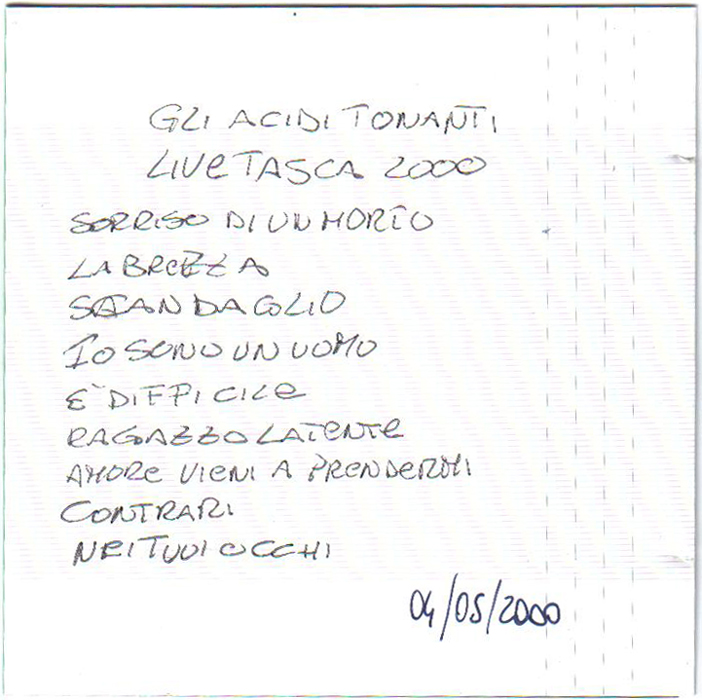 GLI ACIDI TONANTI
LIVE TASCA 2000
SORRISO DI UN MORTO
LA BREZZA
SCANDAGLIO
IO SONO UN UOMO
E' DIFFICILE
RAGAZZO LATENTE
AMORE VIENI A PRENDERMI
CONTRARI
NEI TUOI OCCHI
04/05/2000